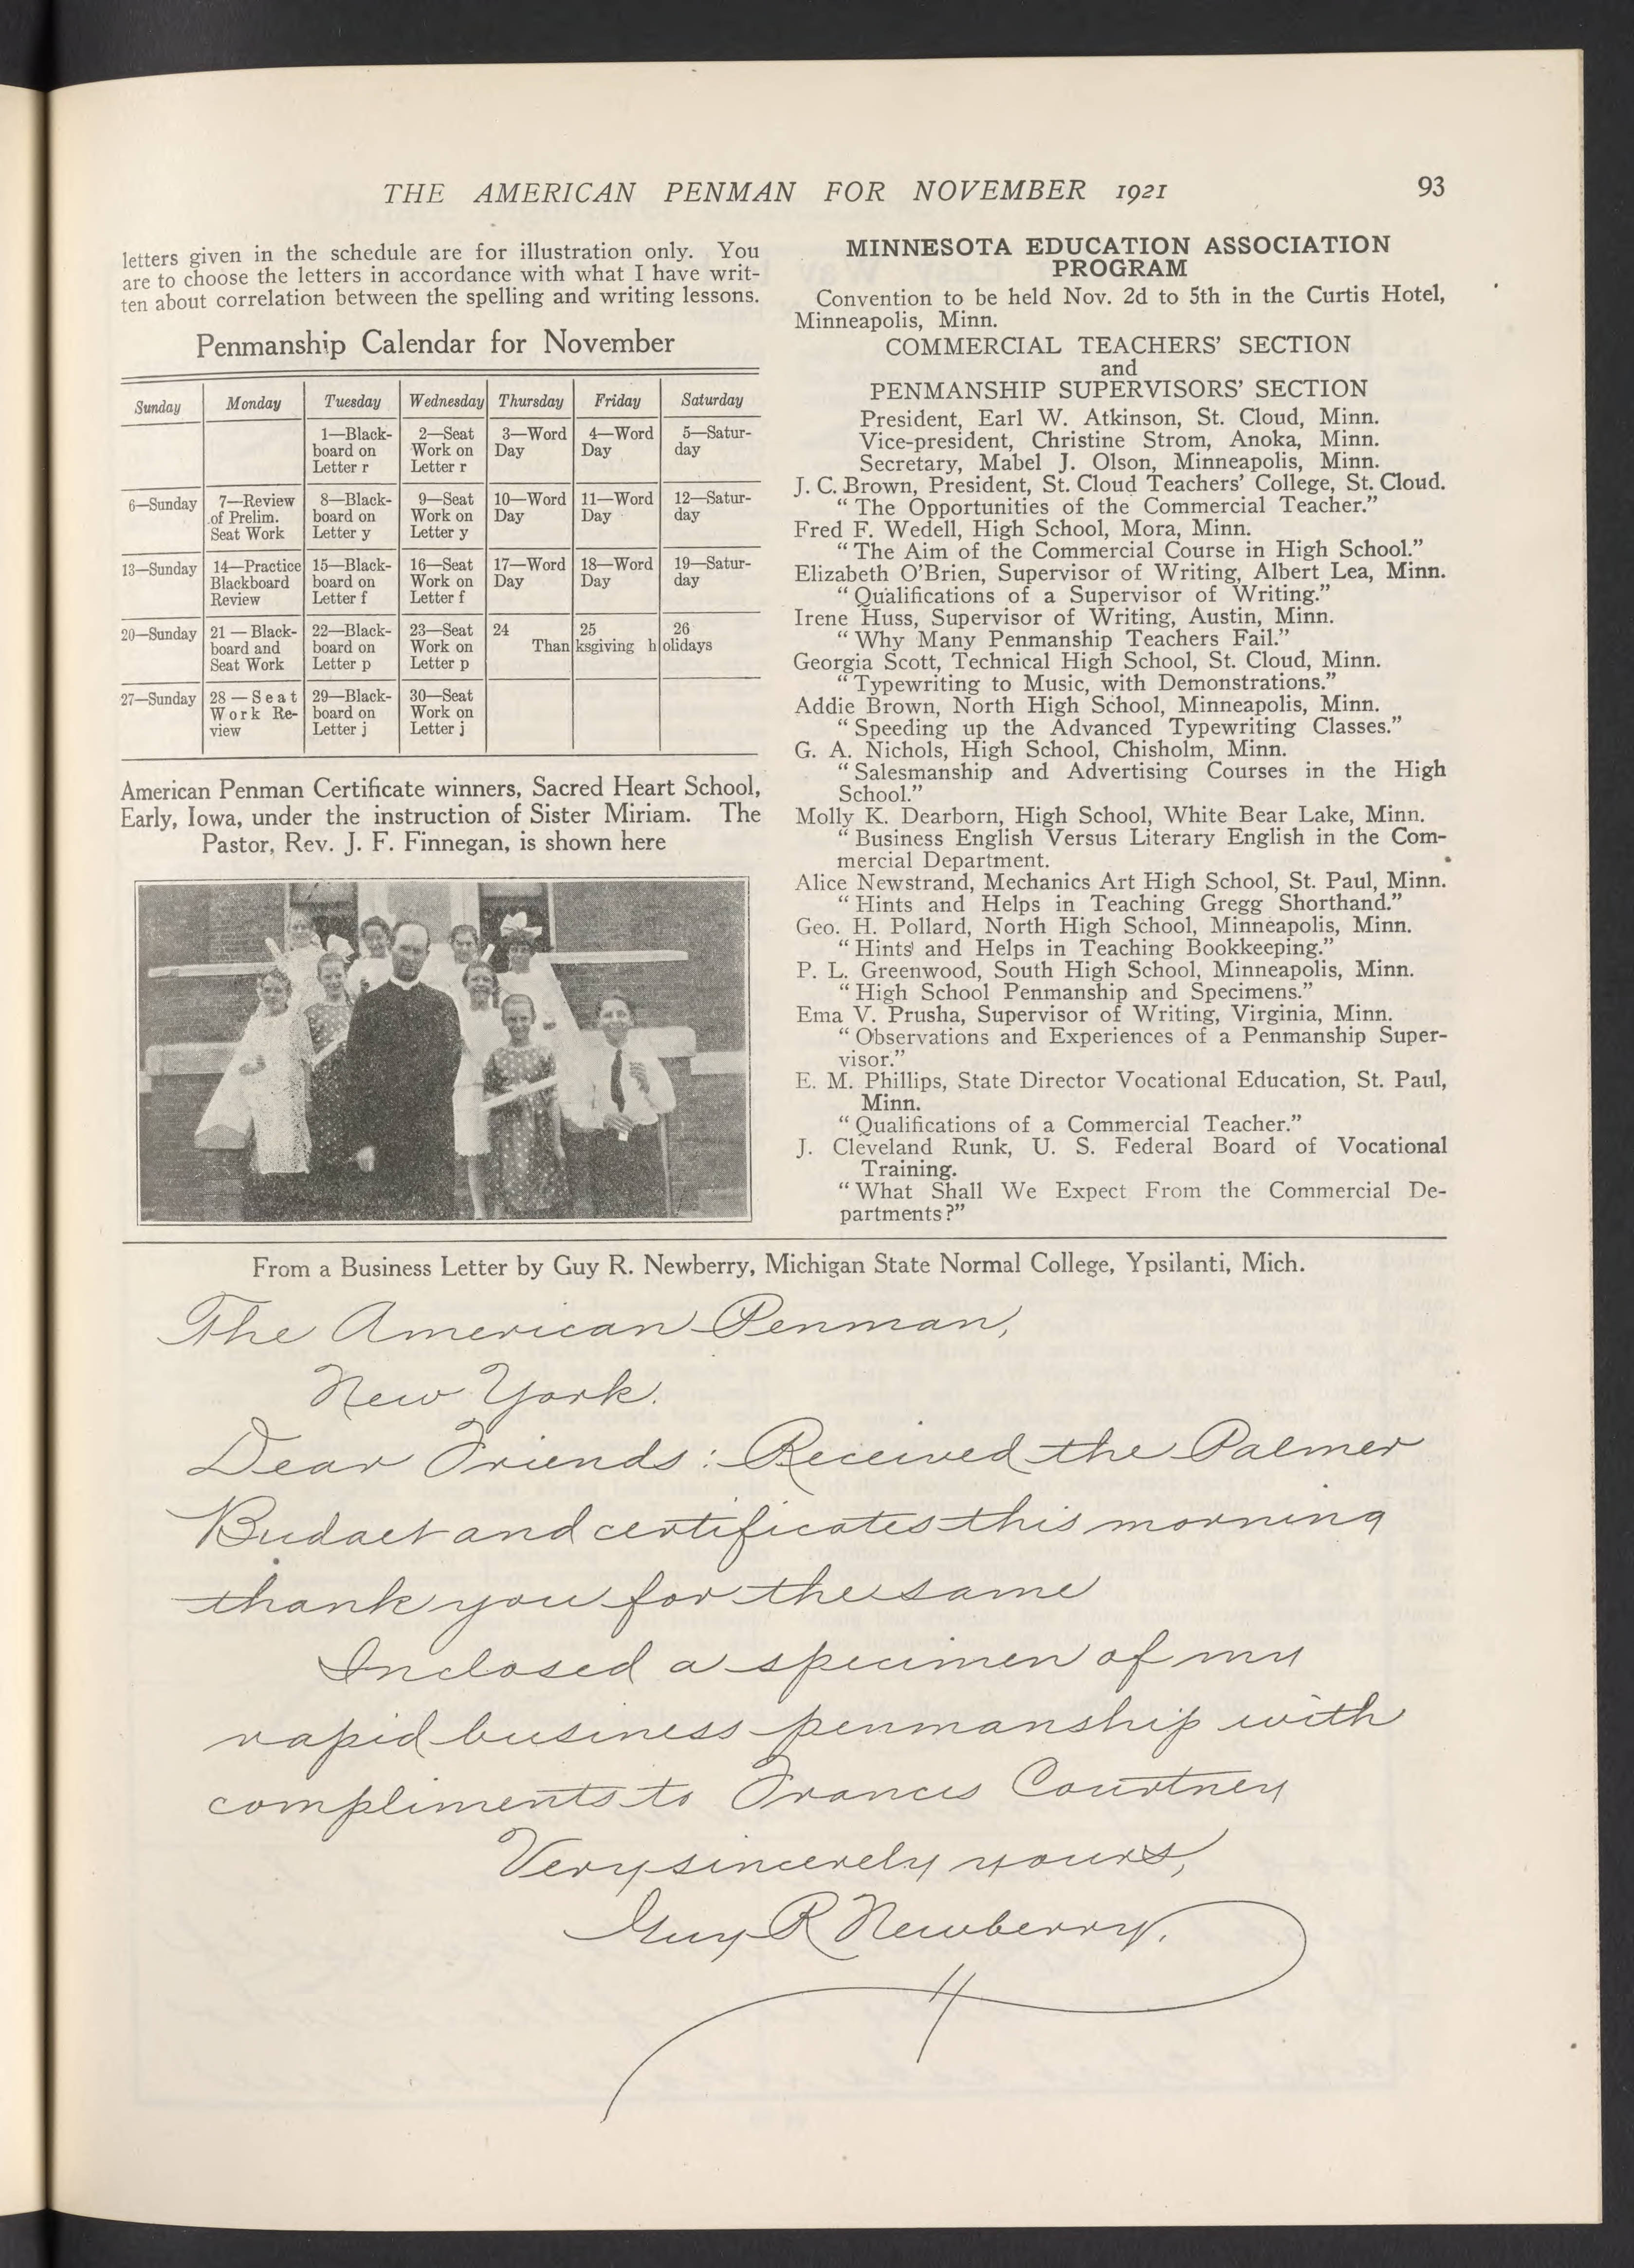 THE AMERICAN PENMAN FOR NOVEMBER 1921
93
letters given in the schedule are for illustration only. You
are to choose the letters in accordance with what I have writ-
ten about correlation between the spelling and writing lessons.
Penmanship Calendar for November
Sunday Monday Tuesday Wednesday Thursday Friday Saturday
1—Black- 2—Seat 3—Word 4—Word 5—Satur-
board on Work on Day Day day
Letter r Letter r
6—Sunday 7—Review 8—Black- 9—Seat 10—Word 11—Word 12—Satur-
of Prelim. board on Work on Day Day day
Seat Work Letter y Letter y
13—Sunday 14—Practice 15—Black- 16—Seat 17—Word 18—Word 19—Satur-
Blackboard board on Work on Day Day day
Review Letter f Letter f
20—Sunday 21 — Black- 22—Black- 23—Seat 24 25 26
board and board on Work on Thanksgiving holidays
Seat Work Letter p Letter p
27—Sunday 28 — Seat 29—Black- 30—Seat
Work Re- board on Work on
view Letter j Letter j
American Penman Certificate winners, Sacred Heart School,
Early, Iowa, under the instruction of Sister Miriam. The
Pastor, Rev. J. F. Finnegan, is shown here
MINNESOTA EDUCATION ASSOCIATION
PROGRAM
Convention to be held Nov. 2d to 5th in the Curtis Hotel,
Minneapolis, Minn.
COMMERCIAL TEACHERS' SECTION
and
PENMANSHIP SUPERVISORS' SECTION
President, Earl W. Atkinson, St. Cloud, Minn.
Vice-president, Christine Strom, Anoka, Minn.
Secretary, Mabel J. Olson, Minneapolis, Minn.
J. C. Brown, President, St. Cloud Teachers' College, St. Cloud.
"The Opportunities of the Commercial Teacher."
Fred F. Wedell, High School, Mora, Minn.
"The Aim of the Commercial Course in High School."
Elizabeth O'Brien, Supervisor of Writing, Albert Lea, Minn.
"Qualifications of a Supervisor of Writing."
Irene Huss, Supervisor of Writing, Austin, Minn.
"Why Many Penmanship Teachers Fail."
Georgia Scott, Technical High School, St. Cloud, Minn.
"Typewriting to Music, with Demonstrations."
Addie Brown, North High School, Minneapolis, Minn.
"Speeding up the Advanced Typewriting Classes."
G. A. Nichols, High School, Chisholm, Minn.
"Salesmanship and Advertising Courses in the High
School."
Molly K. Dearborn, High School, White Bear Lake, Minn.
"Business English Versus Literary English in the Com-
mercial Department.
Alice Newstrand, Mechanics Art High School, St. Paul, Minn.
"Hints and Helps in Teaching Gregg Shorthand."
Geo. H. Pollard, North High School, Minneapolis, Minn.
"Hints and Helps in Teaching Bookkeeping."
P. L. Greenwood, South High School, Minneapolis, Minn.
"High School Penmanship and Specimens."
Ema V. Prusha, Supervisor of Writing, Virginia, Minn.
"Observations and Experiences of a Penmanship Super-
visor."
E. M. Phillips, State Director Vocational Education, St. Paul,
Minn.
"Qualifications of a Commercial Teacher."
J. Cleveland Runk, U. S. Federal Board of Vocational
Training.
"What Shall We Expect From the Commercial De-
partments?"
From a Business Letter by Guy R. Newberry, Michigan State Normal College, Ypsilanti, Mich.
The American Penman,
New York.
Dear Friends: Received the Palmer
Budget and certificates this morning
thank you for the same
Inclosed a specimen of my
rapid business penmanship with
compliments to Francis Courtney
Very sincerely yours,
Guy R Newberry.